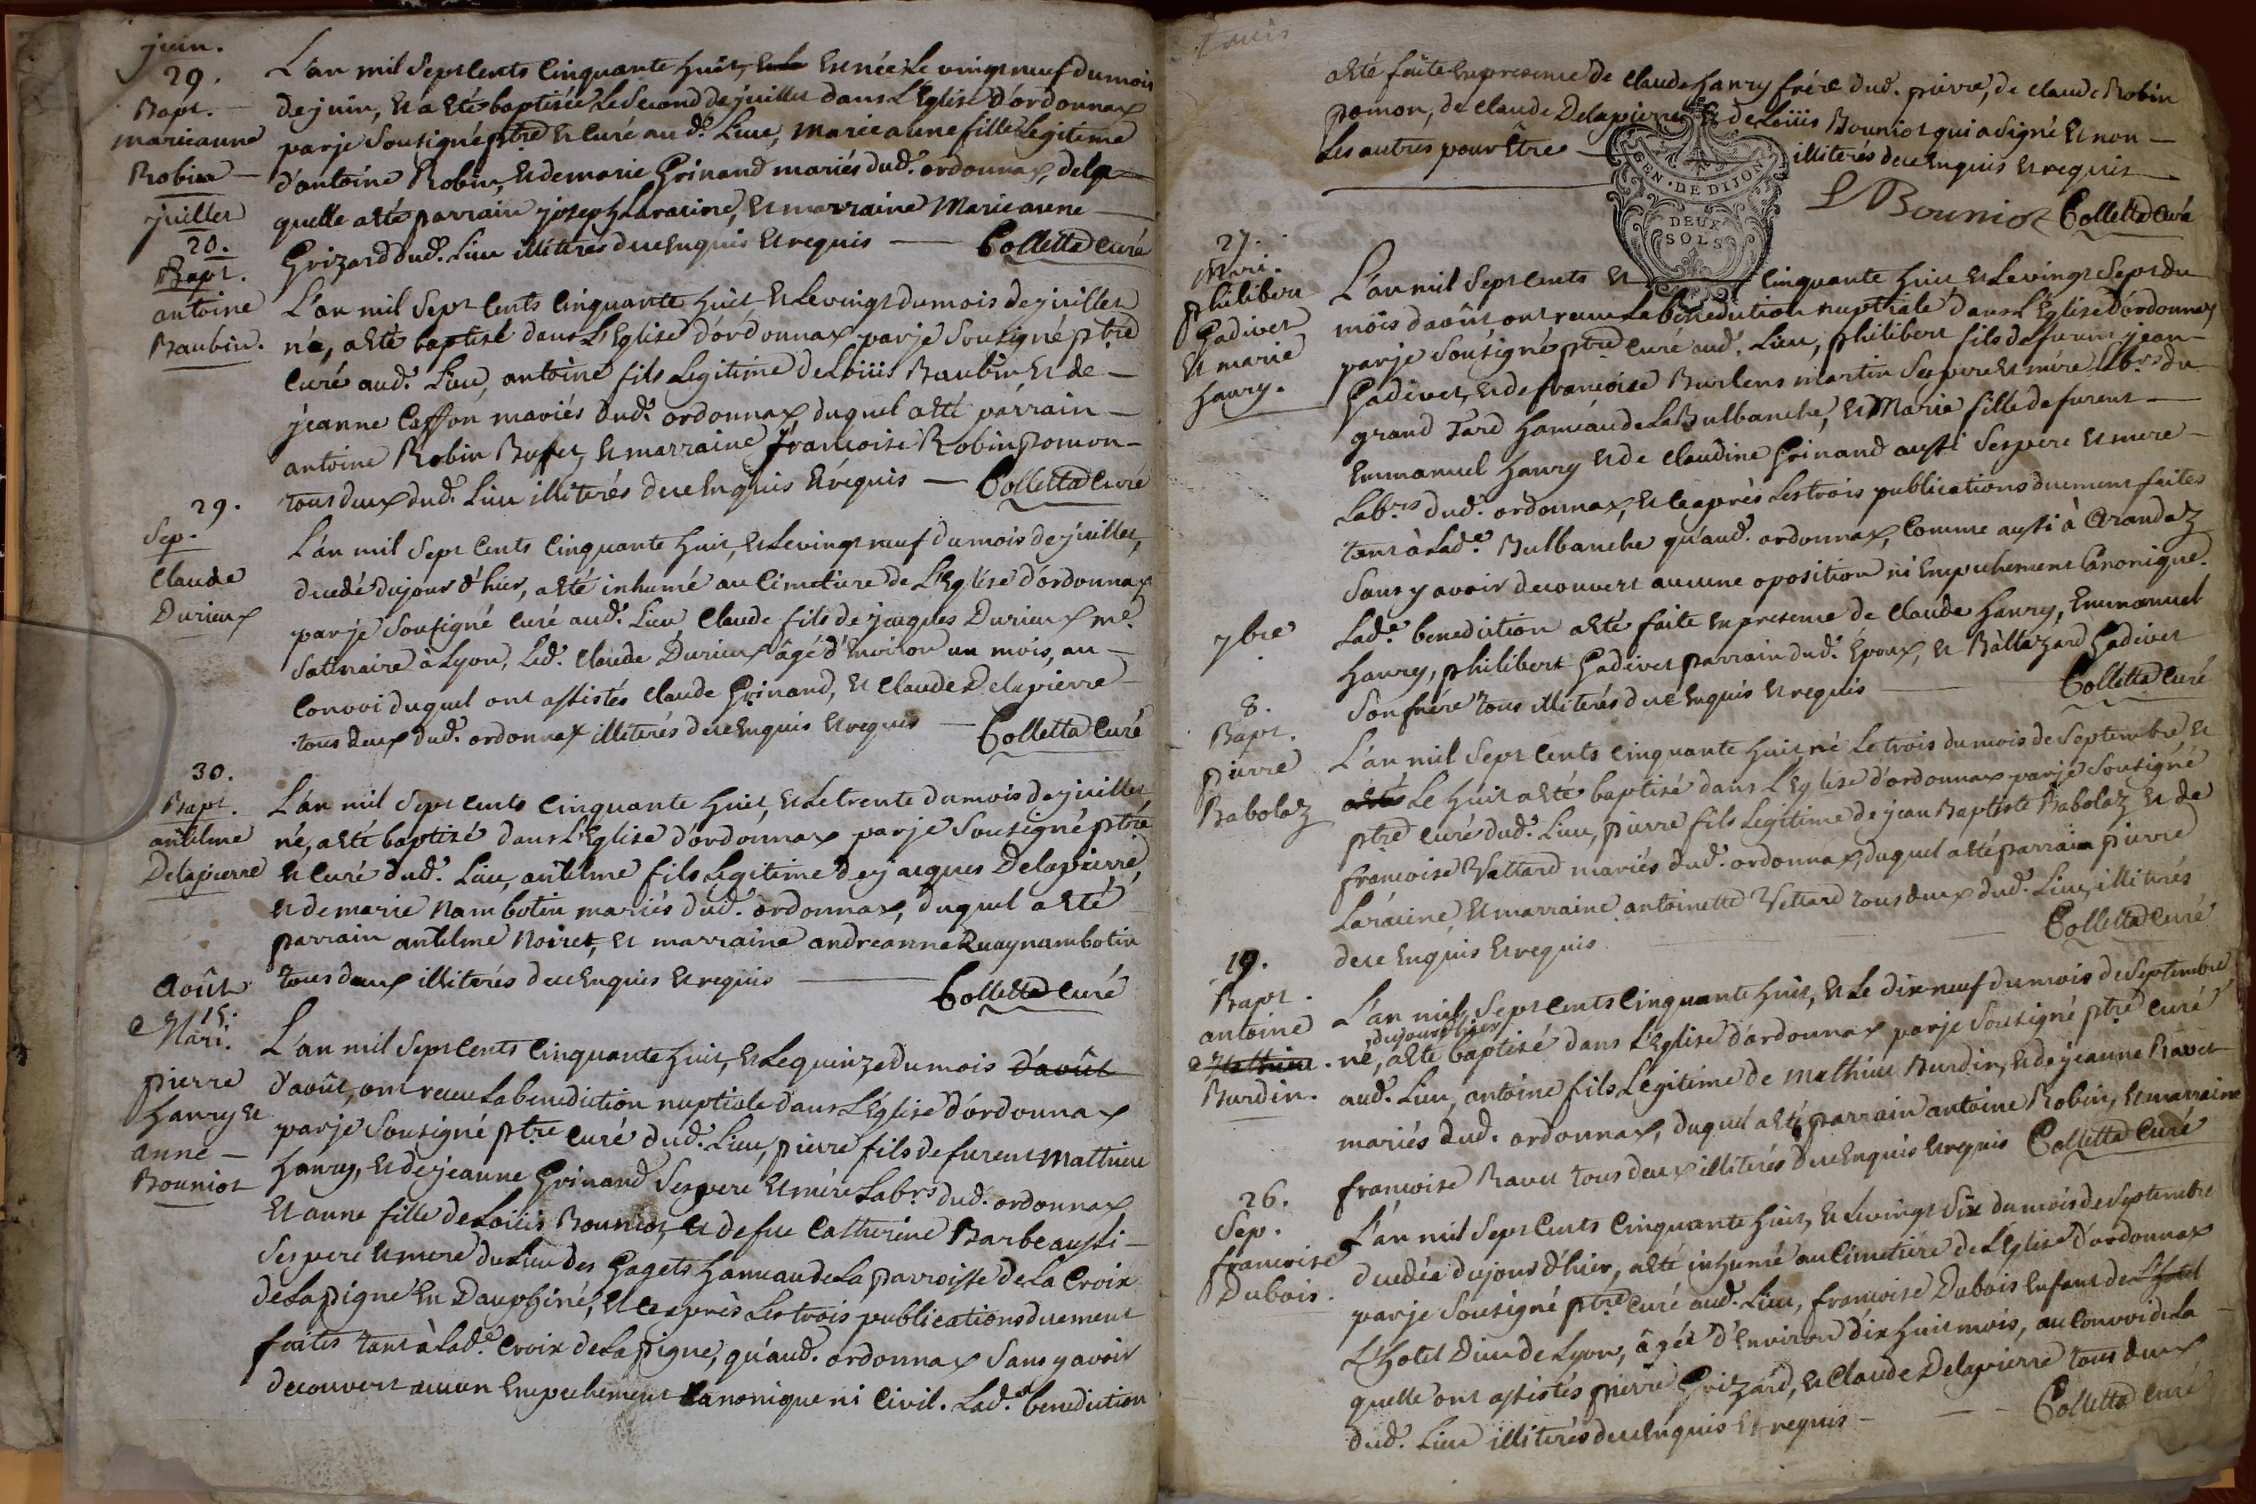 juin.
29.
Bapt.
marieanne
Robin
L'an mil sept cents cinquante huit, est née le vingt neuf du mois
de juin, et a eté baptisée le second de juillet dans l'Eglise d'ordonnax
par je sousigné ptre et curé au d.e lieu, marieanne fille legitime
d'antoine Robin, et de marie Grinand mariés dud. ordonnax, de la
quelle a eté parrain joseph Laracine, et marraine Marieanne
Grizard dud. lieu illiterés de ce enquis et requis Colletta curé
juillet
20.
Bapt.
antoine
Baubin.
L'an mil sept cents cinquante huit et le vingt du mois de juillet
né, a eté baptisé dans l'Eglise d'ordonnax par je sousigné ptre
curé aud. lieu, antoine fils legitime de Loüis Baubin, et de
jeanne Caffon mariés dud. ordonnax, duquel a eté parrain
antoine Robin Buffet, et marraine francoise Robin pomon
tous deux dud. lieu illiterés de ce enquis et requis Colletta curé
29.
Sep.
Claude
Durieux
L'an mil sept cents cinquante huit, et le vingt neuf du mois de juillet,
decedé du jour d'hier, a eté inhumé au cimetiere de l'Eglise d'ordonnax
par je sousigné curé aud. lieu Claude fils de jacques Durieux me.
satinaire à Lyon, led. Claude Durieux âgé d'environ un mois, au
convoi duquel ont assistés Claude Grinand, et Claude Delapierre
tous deux dud. ordonnax illiterés de ce enquis et requis Colletta curé
30.
Bapt.
antelme
Delapierre
L'an mil sept cents cinquante huit, et le trente du mois de juillet
né, a eté baptisé dans l'Eglise d'ordonnax par je sousigné ptre
et curé dud. lieu, antelme fils legitime de jacques Delapierre,
et de marie Nambotin mariés dud. ordonnax, duquel a eté
parrain antelme Noiret, et marraine andreanne Quaynambotin
tous deux illiterés de ce enquis et requis Colletta curé
Août
15.
Mari.
pierre
hanry et
anne
Bouniot
L'an mil sept cents cinquante huit, et le quinze du mois d'août
d'août, ont receu la benediction nuptiale dans l'Eglise d'ordonnax
par je sousigné ptre curé dud. lieu, pierre fils de furent Mathieu
hanry, et de jeanne Grinand ses pere et mére Lab.rs dud. ordonnax
et anne fille de Loüis Bouniot, et de fue Catherine Barbe aussi
ses pere et mere du lieu des Gagets hameau de la parroisse de la Croix
de la pigne en Dauphiné, et ce après les trois publications duement
faites tant à lad.e Croix de la pigne, qu'aud. ordonnax sans y avoir
decouvert aucun empechement canonique ni civil. Lad.e benediction
a eté faite en presence de claude hanry frére dud. pierre, de claude Robin
pomon, de claude Delapierre et de Loüis Bouniot qui a signé et non
les autres pour être illiterés de ce enquis et requis
GEN. DE DIJON
DEUX
SOLS
L Bouniot Colletta curé
27.
Mari.
philibert
Gadivet
et marie
hanry.
L'an mil sept cents et cinquante huit et le vingt sept du
mois d'août ont receu la benediction nuptiale dans l'Eglise d'ordonnax
par je sousigné ptre curé aud. lieu, philibert fils de furent jean
Gadivet, et de francoise Burlens martin ses pere et mére Lab.rs du
grand Tard hameau de la Bulbanche, et Marie fille de furent
Emmanuel hanry et de claudine Grinand aussi ses pere et mere
Lab.rs dud. ordonnax, et ce après les trois publications duement faites
tant à lad.e Bulbanche qu'aud. ordonnax, comme aussi à Arandaz
sans y avoir decouvert aucune oposition ni empechement canonique.
Lad.e benediction a eté faite en presence de claude hanry, Emmanuel
hanry, philibert Gadivet parrain dud. Époux, et Baltazard Gadivet
son frére tous illiterés de ce enquis et requis Colletta curé
7bre
8.
Bapt.
pierre
Babolaz
L'an mil sept cents cinquante huit, né le trois du mois de septembre et
a eté le huit a eté baptisé dans l'Eglise d'ordonnax par je sousigné
ptre curé dud. lieu, pierre fils legitime de jean Baptiste Babolaz et de
francoise Vettard mariés dud. ordonnax, duquel a eté parrain pierre
Laracine, et marraine antoinette Vettard tous deux dud. lieu illiterés
de ce enquis et requis Colletta curé
19.
Bapt.
antoine
Mathieu
Burdin.
L'an mil sept cents cinquante huit, et le dix neuf du mois de septembre
né, du jour d'hier, a eté baptisé dans l'Eglise d'ordonnax par je sousigné ptre curé
aud. lieu, antoine fils legitime de mathieu Burdin, et de jeanne Ravet
mariés dud. ordonnax, duquel a eté parrain antoine Robin, et marraine
francoise Ravet tous deux illiterés de ce enquis et requis Colletta curé
26.
Sep.
francoise
Dubois.
L'an mil sept cents cinquante huit, et le vingt six du mois de septembre
decedée du jour d'hier, a eté inhumé au cimetiere de l'Eglise d'ordonnax
par je sousigné ptre curé aud. lieu, francoise Dubois enfant de l'hotel
l'hotel Dieu de Lyon, âgée d'environ dix huit mois, au convoi de la
quelle ont assistés pierre Grizard, et claude Delapierre tous deux
dud. lieu illiterés de ce enquis et requis Colletta curé